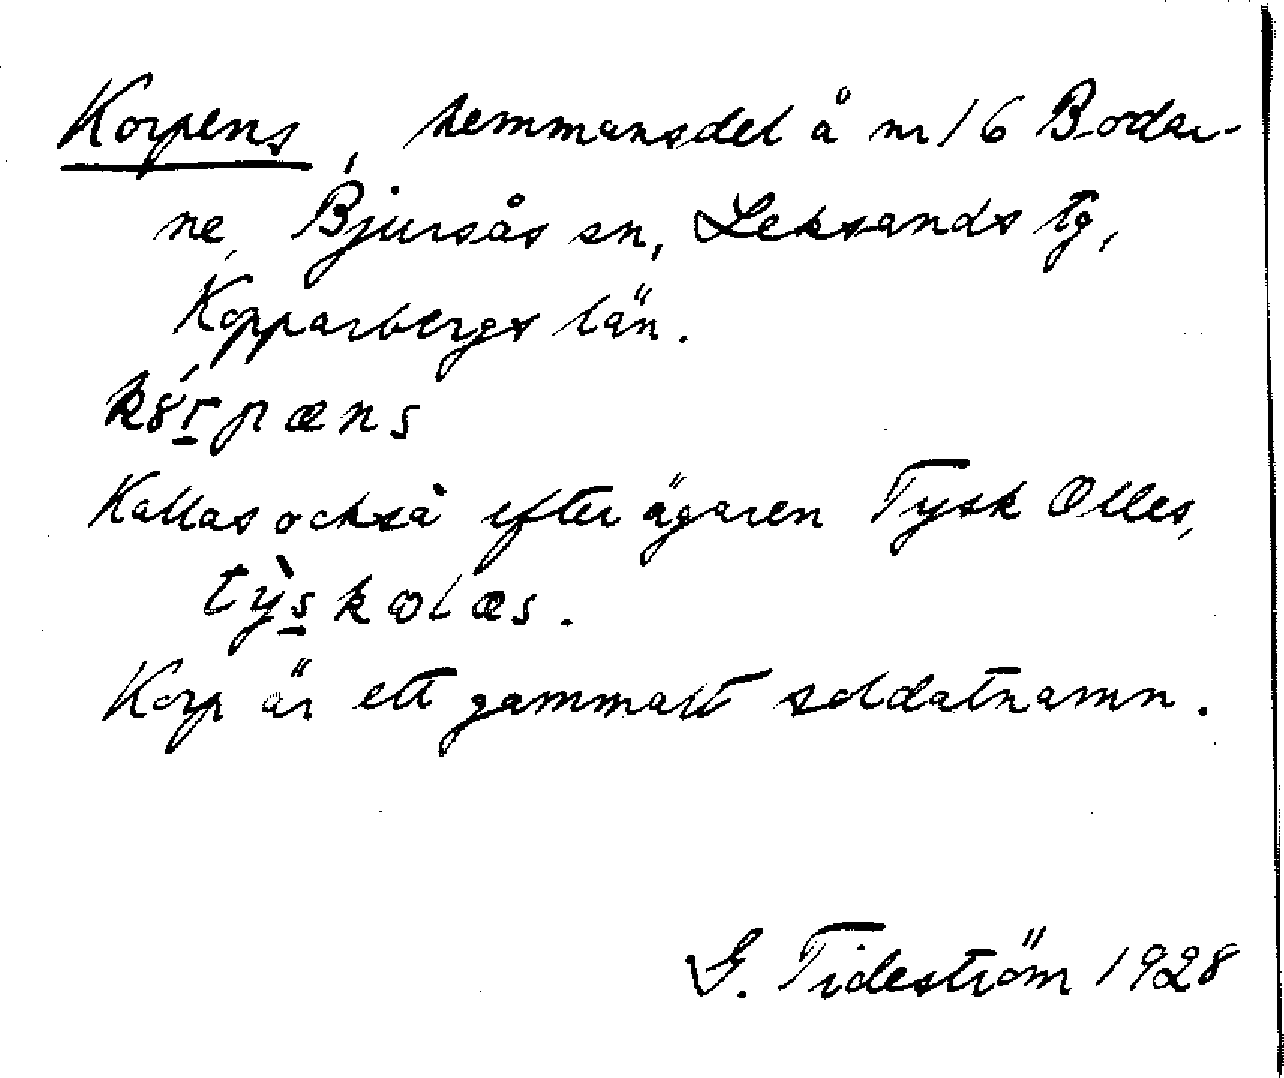 Korpens, hemmansdel å nr 16 Bodar-
ne, Bjursås sn, Leksands tg,
Kopparbergs län.
kɞ́r̲pæns
Kallas också efter ägaren Tysk Olles,
tỳs̲kωlæs.
Korp är ett gammalt soldatnamn.
G. Tideström 1928